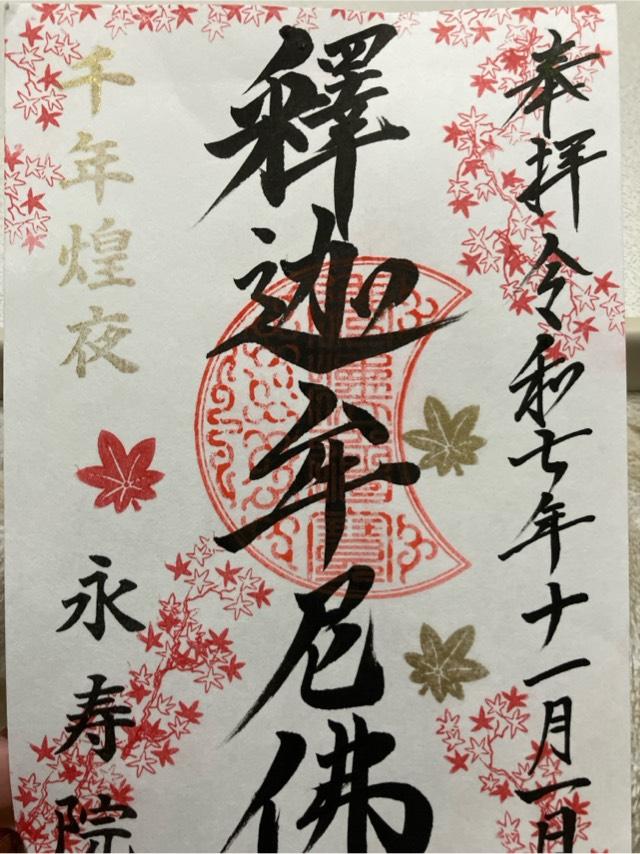 奉拝 令和七年十一月一日
釋迦牟尼佛
千年煌夜
永寿院